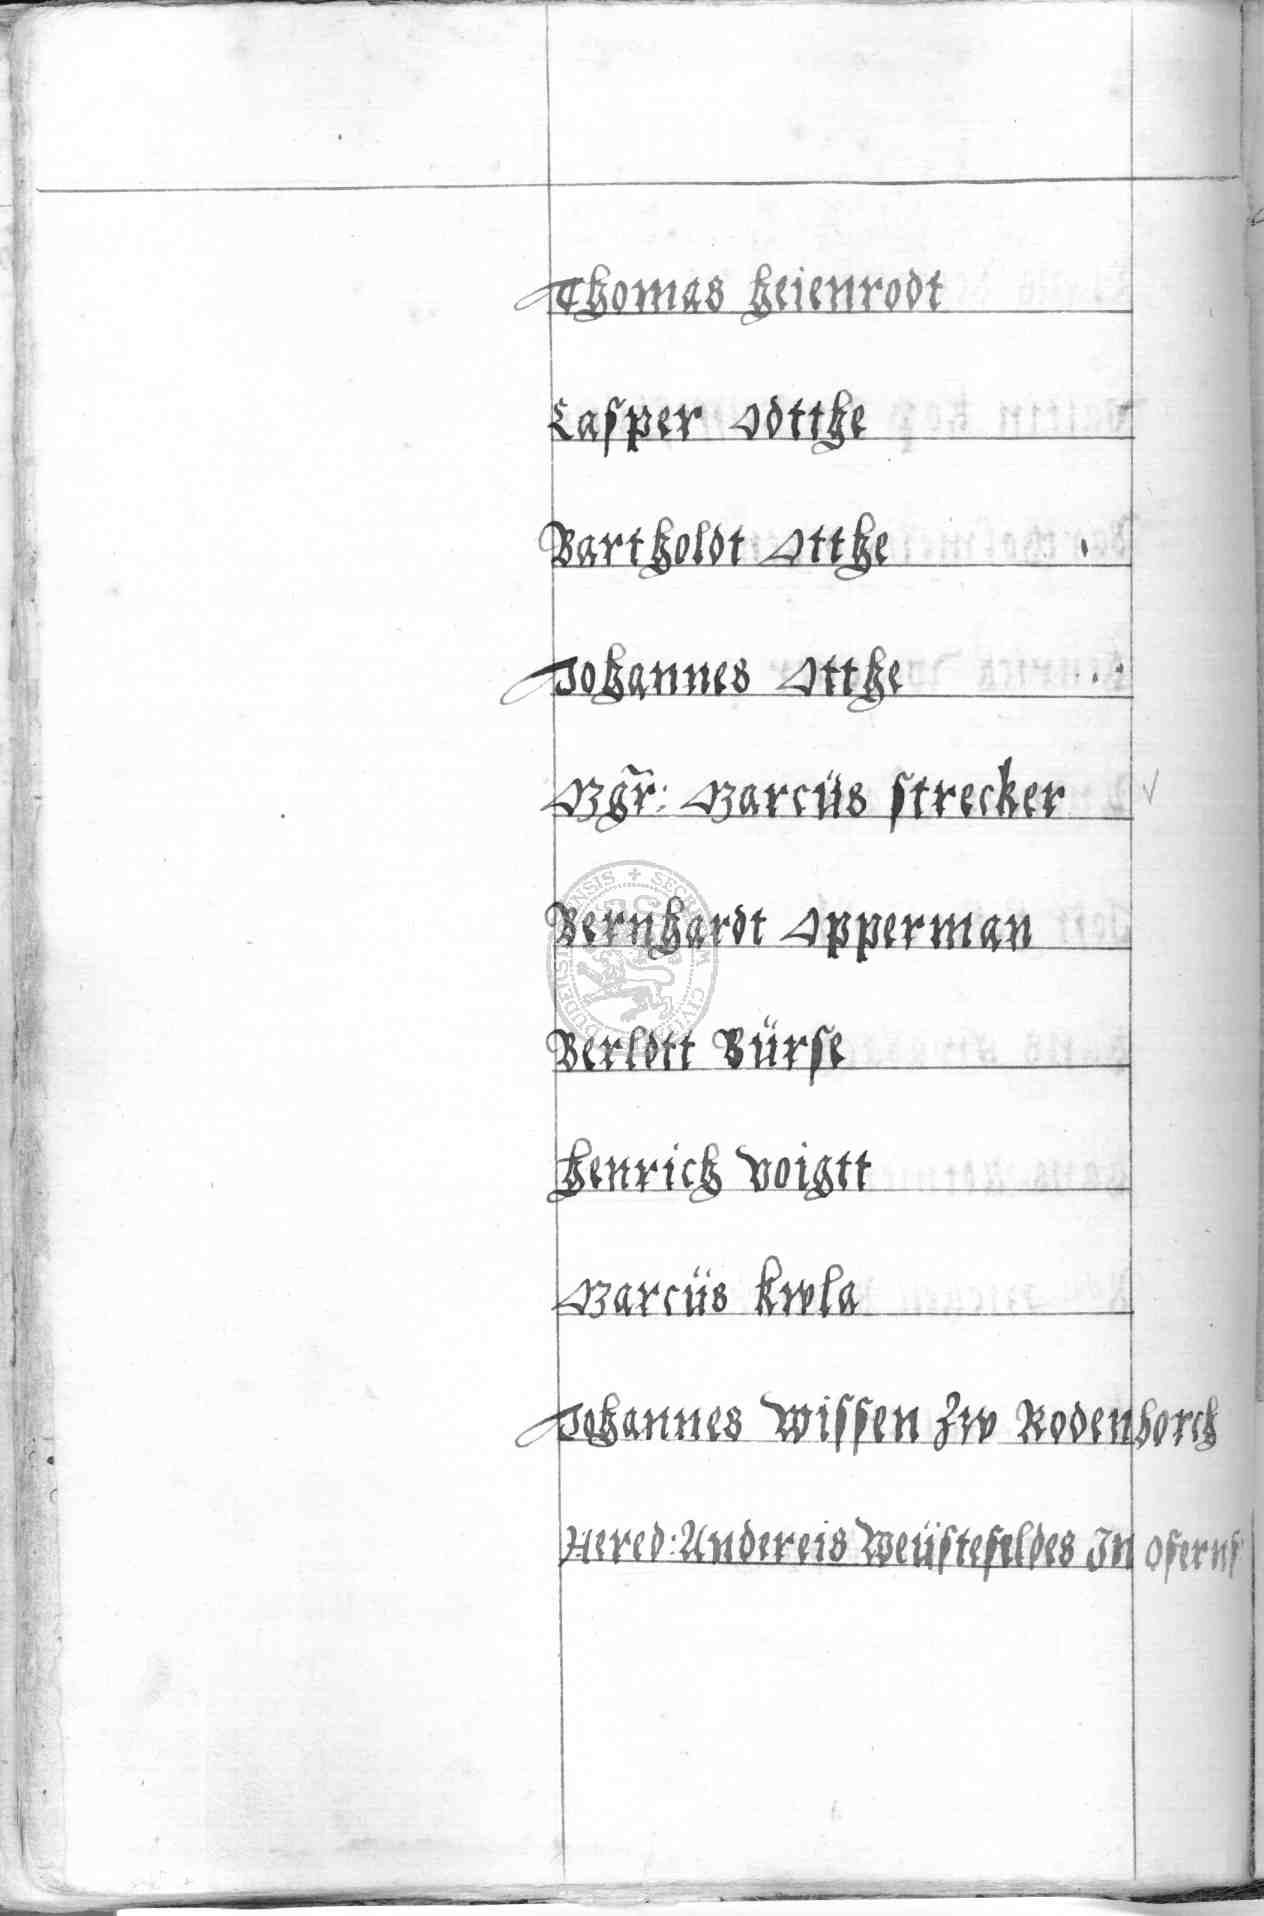 Thomas heienrodt
Casper Odtthe
Bartholdt Otthe
Johannes Otthe
Mgr: Marcüs strecker
Bernhardt Opperman
Berldtt Bürse
henrich voigtt
Marcüs kwla
Johannes Wissen Zw Rodenborch
Hered: Andereis Weüstefeldes In